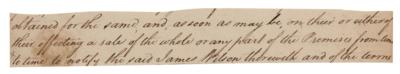 obtained for the same, and as soon as may be, on their or either of
their effecting a sale of the whole or any part of the Premises from time
to time to notify the said James Wilson therewith and of the terms